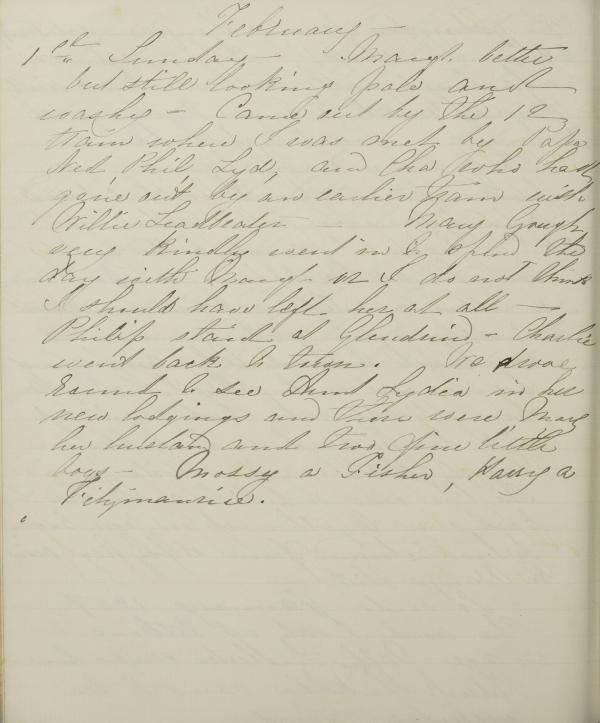 February
1st Sunday - Margt. better
but still looking pale and
washy - Came out by the 12
train where I was met by Papa
Ned, Phil, Lyd, and Cha who had
gone out by an earlier tram with
Willie Leadbeater - Mary Gough
very kindly went in to spend the
day with Margt or I do not think
I should have left her at all -
Philip staid at Glendruid - Charlie
went back to town. We drove
round to see Aunt Lydia in her
new lodgings and there were Mary
her husband and two fine little
boys - Mossy a Fisher, Harry a
Fitzmaurice.